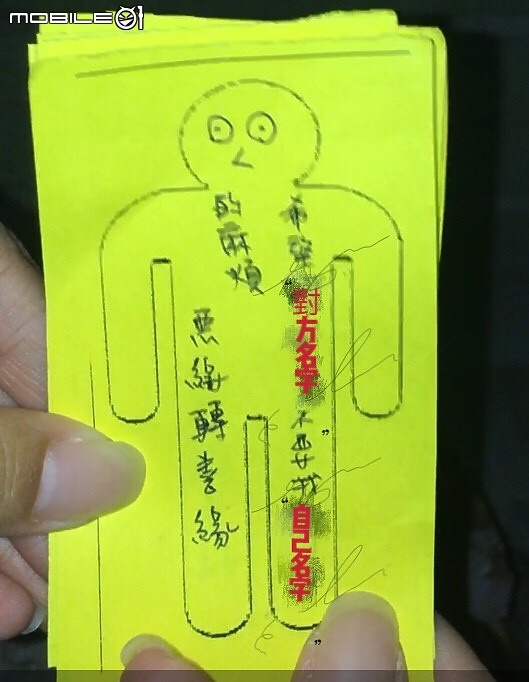 MOBILE01
希望“對方名字”不要找“自己名字”
的麻煩
惡緣轉善緣